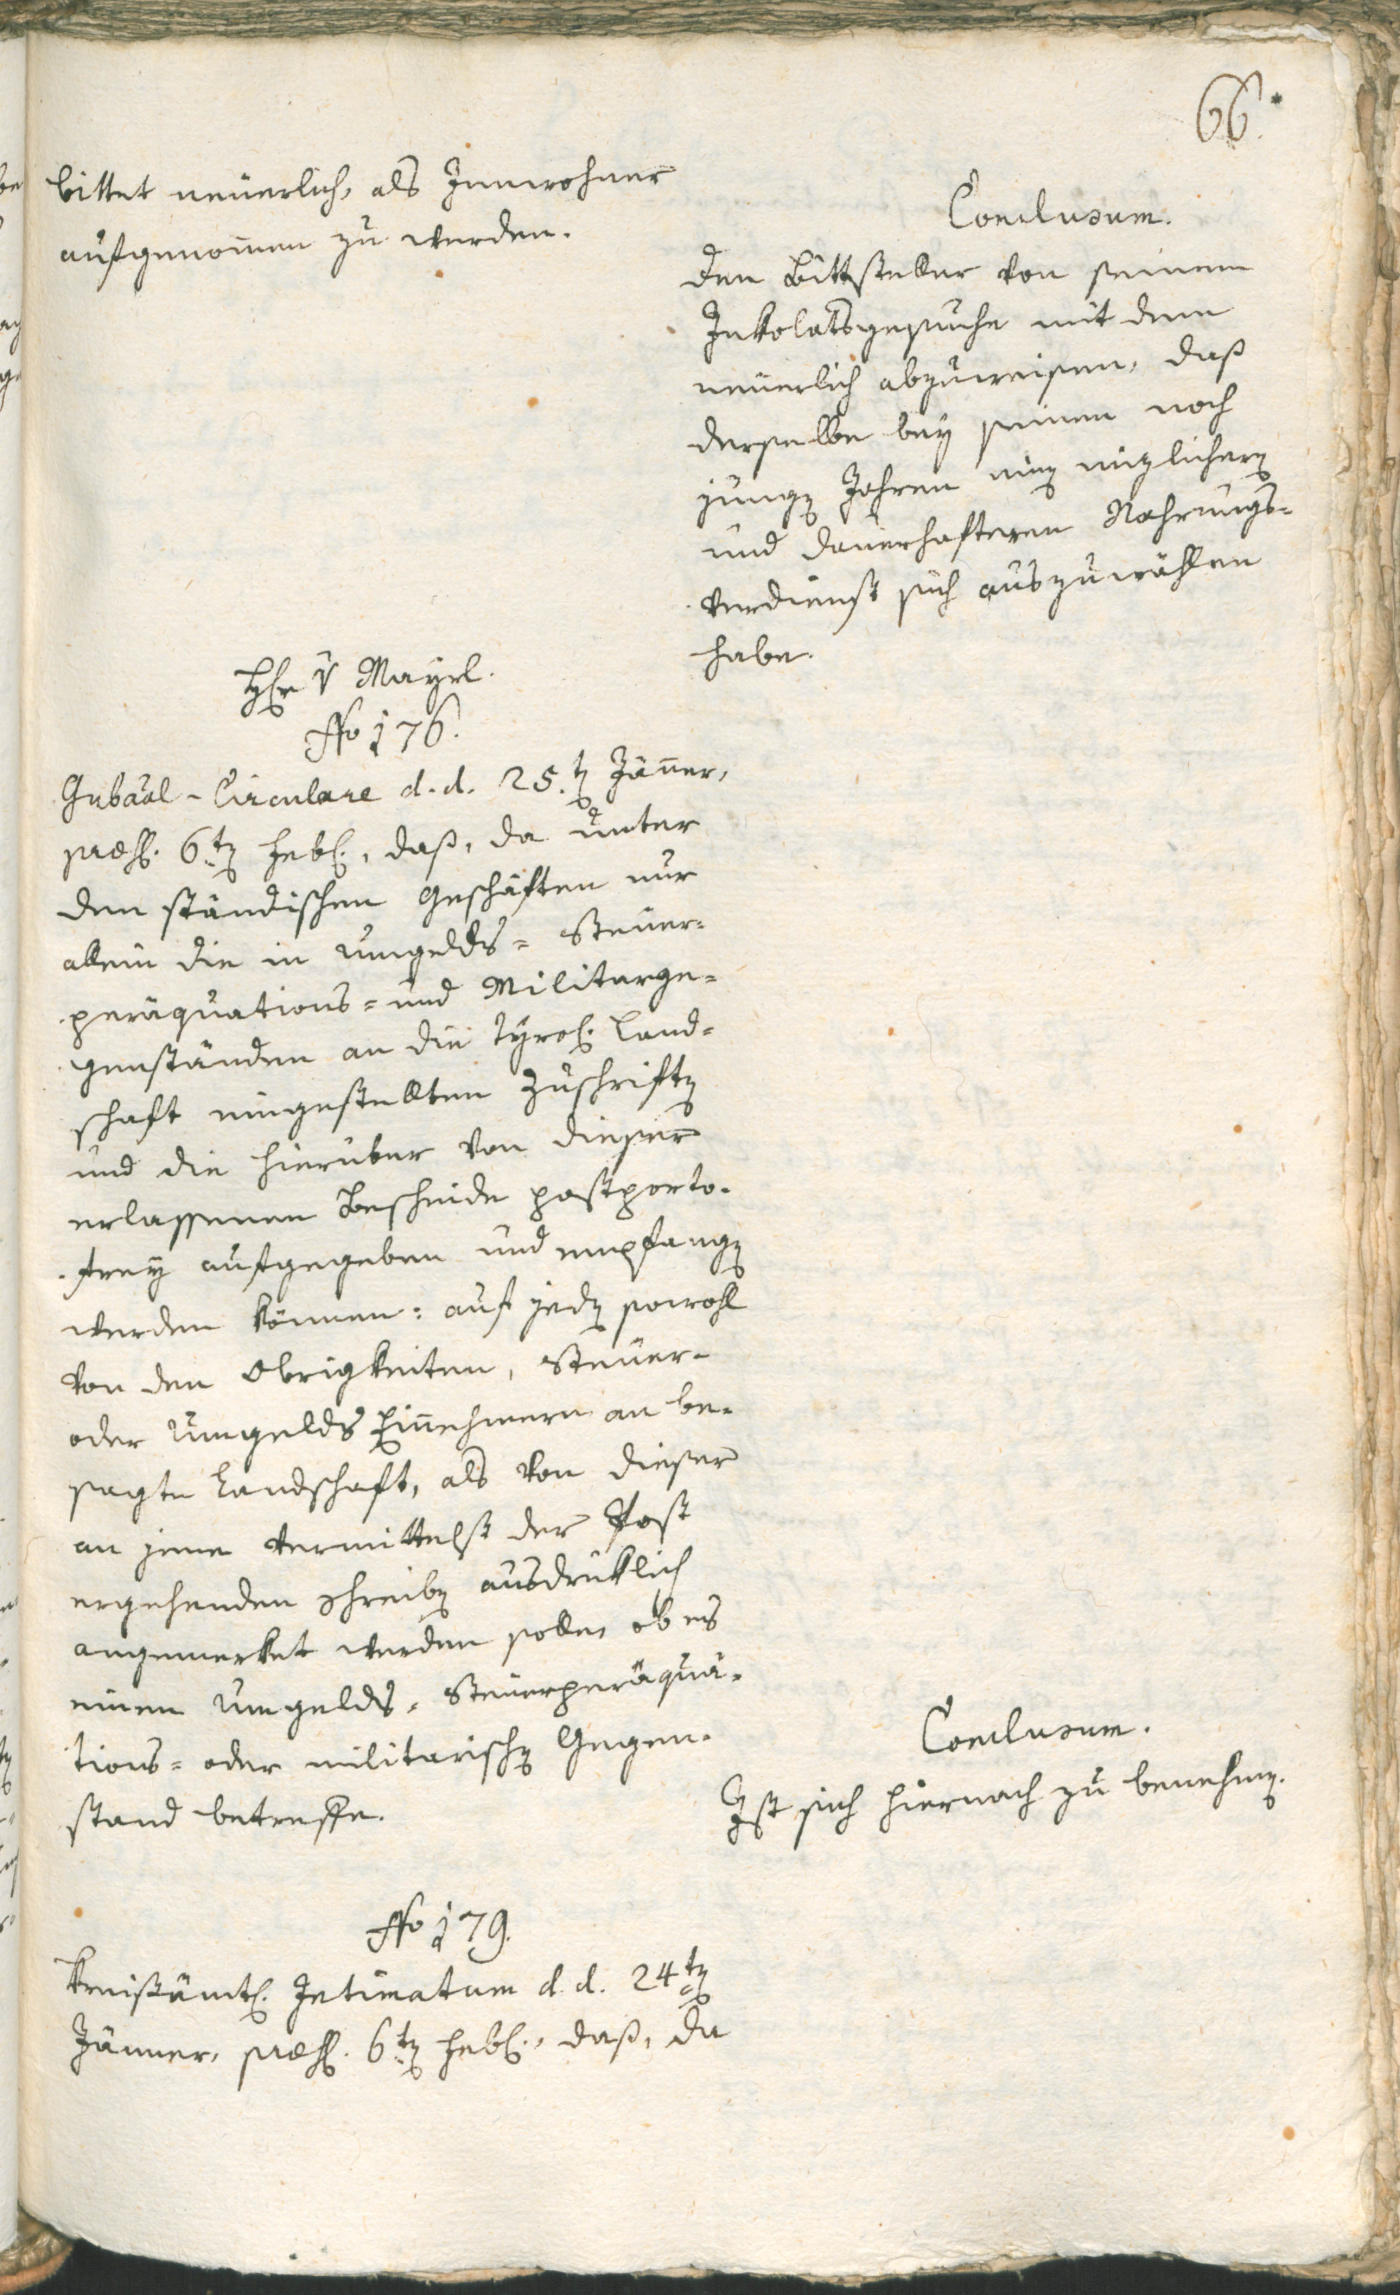 66.
bittet neüerlich, als Innwohner
aufgenom̄en zu werden.
Conclusum.
den Bittsteller von seinem
Inkolatsgesuche mit dem
neüerlich abzuweisen, daß
derselbe bey seinen noch
jungen Jahren einen nüzlichern
und dauerhafteren Nahrungs-
verdienst sich auszuwählen
habe.
Hr v Mayrl.
No 176.
Gubaal-Circulare d. d. 25.ten Jäner,
præs. 6ten Feb., daß, da unter
den ständischen Geschäften nur
allein die in Umgelds- Steüer-
peräquations- und Militarge-
genständen an die Tyrol. Land-
schaft eingestellten Zuschriften
und die hierüber von dieser
erlassenen Bescheide postporto-
frey aufgegeben und empfangen
werden können: auf jeden sowohl
von den Obrigkeiten, Steüer-
oder Umgelds Einnehmern an be-
sagte Landschaft, als von dieser
an jene vermittelst der Post
ergehenden Schreiben ausdrüklich
angemerket werden solle, ob es
einen Umgelds- Steüerperäqua-
tions- oder militarischen Gegen-
stand betreffe.
Conclusum.
Ist sich hiernach zu benehmen.
No 179.
Kreißämtl. Intimatum d. d. 24ten
Jänner, præs. 6ten Feb., daß, da